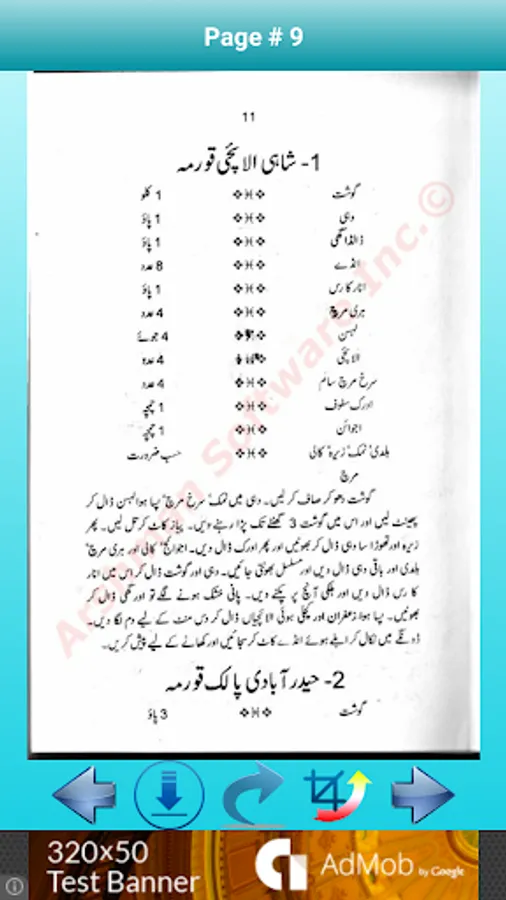 Page # 9
11
1- شاہی الائچی قورمہ
گوشت 1 کلو
دہی 1 پاؤ
ڈالڈا گھی 1 پاؤ
انڈے 8 عدد
انار کا رس 1 پاؤ
ہری مرچ 4 عدد
لہسن 4 جوئے
الائچی 4 عدد
سرخ مرچ سالم 4 عدد
ادرک سفوف 1 چمچہ
اجوائن 1 چمچہ
ہلدی' نمک' زیرہ' کالی حسب ضرورت
مرچ
گوشت دھو کر صاف کر لیں۔ دہی میں نمک' سرخ مرچ' پسا ہوا لہسن ڈال کر
پھینٹ لیں اور اس میں گوشت 3 گھنٹے تک پڑا رہنے دیں۔ پیاز کاٹ کر تل لیں۔ پھر
زیرہ اور تھوڑا سا دہی ڈال کر بھونیں اور پھر ادرک ڈال دیں۔ اجوائن' کالی اور ہری مرچ'
ہلدی اور باقی دہی ڈال دیں اور مسلسل بھونتی جائیں۔ دہی اور گوشت ڈال کر اس میں انار
کا رس ڈال دیں اور ہلکی آنچ پر پکنے دیں۔ پانی خشک ہونے لگے تو اور گھی ڈال کر
بھونیں۔ پسا ہوا زعفران اور پکی ہوئی الائچیاں ڈال کر دس منٹ کے لیے دم لگا دیں۔
ڈونگے میں نکال کر ابلے ہوئے انڈے کاٹ کر سجائیں اور کھانے کے لیے پیش کریں۔
2- حیدر آبادی پالک قورمہ
گوشت 3 پاؤ
Arshman Software Inc. ©
320×50
Test Banner
AdMob by Google